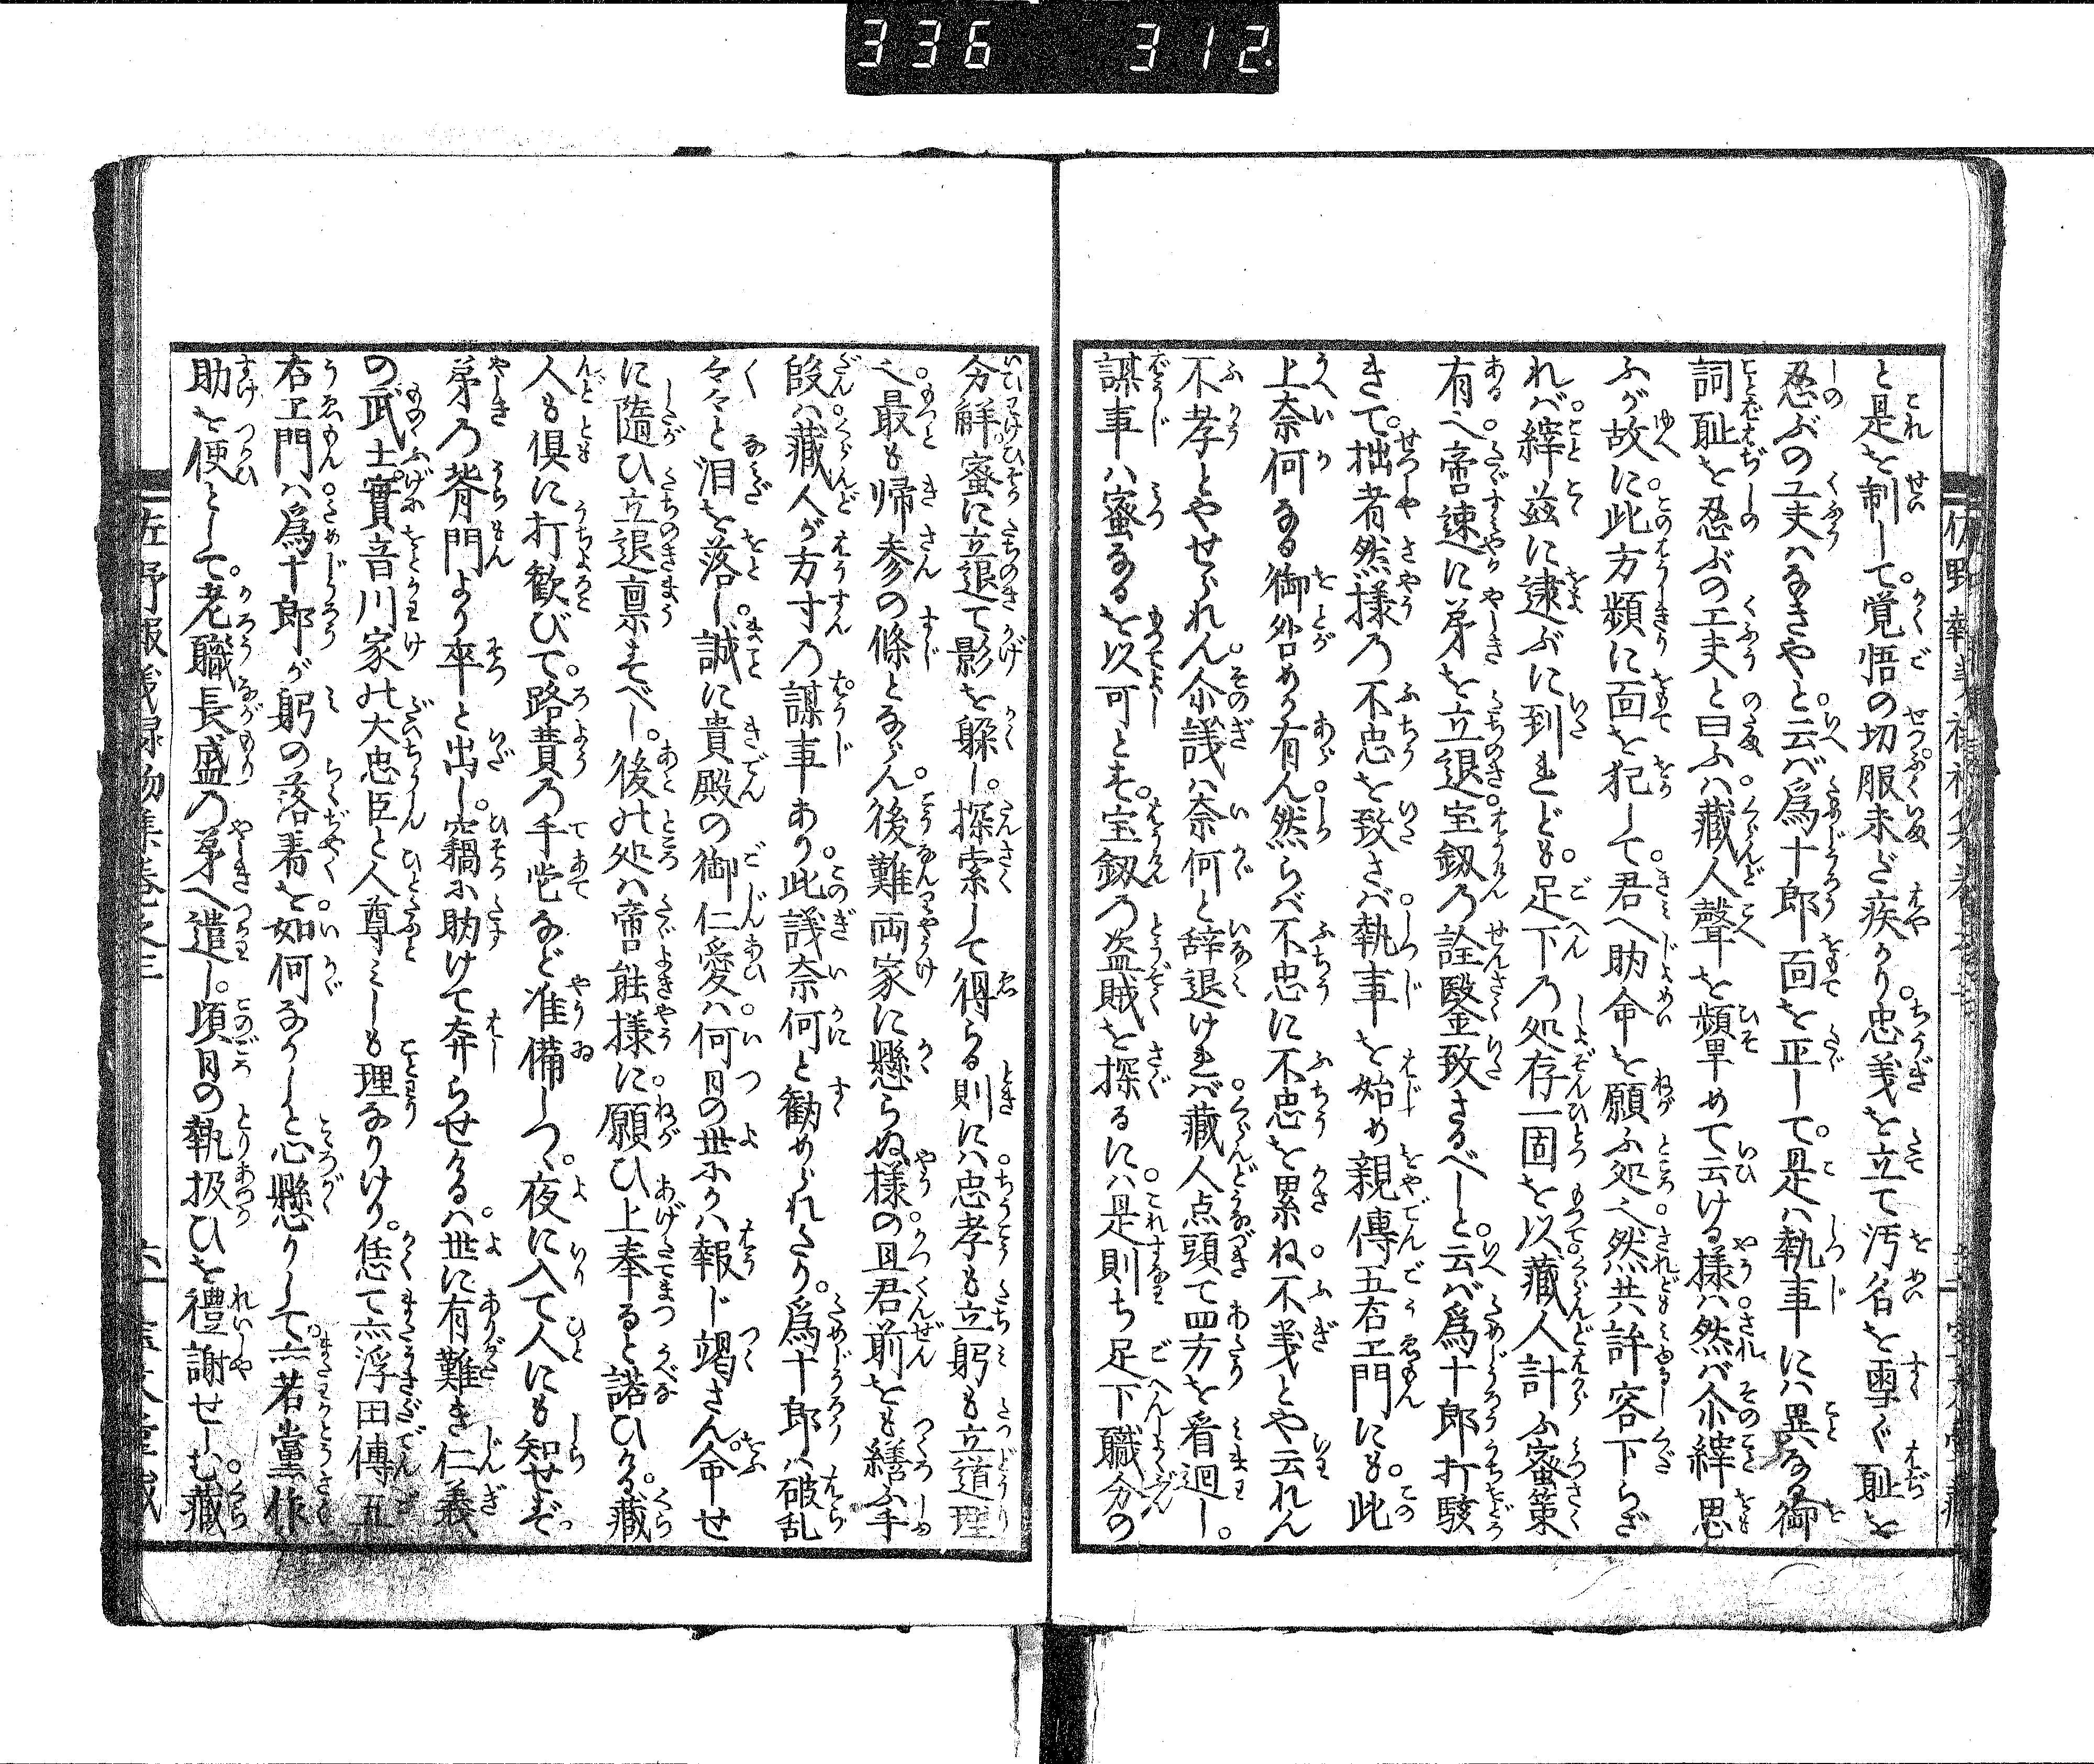 336 312
と是を制して覚悟の切服未だ疾かり忠義を立て汚名を雪ぐ恥を
忍ぶの工夫はなきやと。云ば為十郎面を正して。是は執事には異なる御
詞恥を忍ぶの工夫と曰ふは藏人聲を顰めて云ける様は然ば尒縡思
ふが故に此方頻に面を犯して。君へ助命を願ふ処之然共許容下らざ
れば縡茲に逮ぶに到れども。足下の処存一固を以藏人計ふ蜜策
有之。啻速に第を立退宝釼の詮鑿致さるべしと。云ば為十郎打駭
きて。拙者然様の不忠を致さば執事を始め親傳五右エ門にも。此
上奈何なる御咎めか有ん然らば不忠に不忠を累ね不義とや云れん
不孝とやせられん尒議は奈何と辞退ければ藏人点頭て四方を看廻し。
謀事は蜜なるを以可とす。宝釼の盗賊を探るには是則ち足下職分の
分解蜜に立退て影を躲し。探索して得らる則には忠孝も立躬も立道理
之最も帰参の條とならん。後難両家に懸らぬ様の且君前をも繕ふ手
段は藏人が方寸の謀事あり。此議奈何と勧められたり。為十郎は破乱
々々と泪を落し誠に貴殿の御仁愛は何日の世にかは報じ竭さん。命せ
に隨ひ立退凛すべし。後の処は啻能様に願ひ上奉ると諾ひける。藏
人も倶に打歓びて。路費の手当など准備しつ、夜に入て人にも智せぞ
第の背門より卒と出し。竊に助けて奔らせける。世に有難き仁義
の武士。實音川家の大忠臣と人尊みしも理なりけり。恁て亦浮田傳五
右エ門は為十郎が躬の落着を如何なりしと心懸りして。亦若黨作
助を便として。老職長盛の第へ遣し。頃日の執扱ひを禮謝せしむ藏